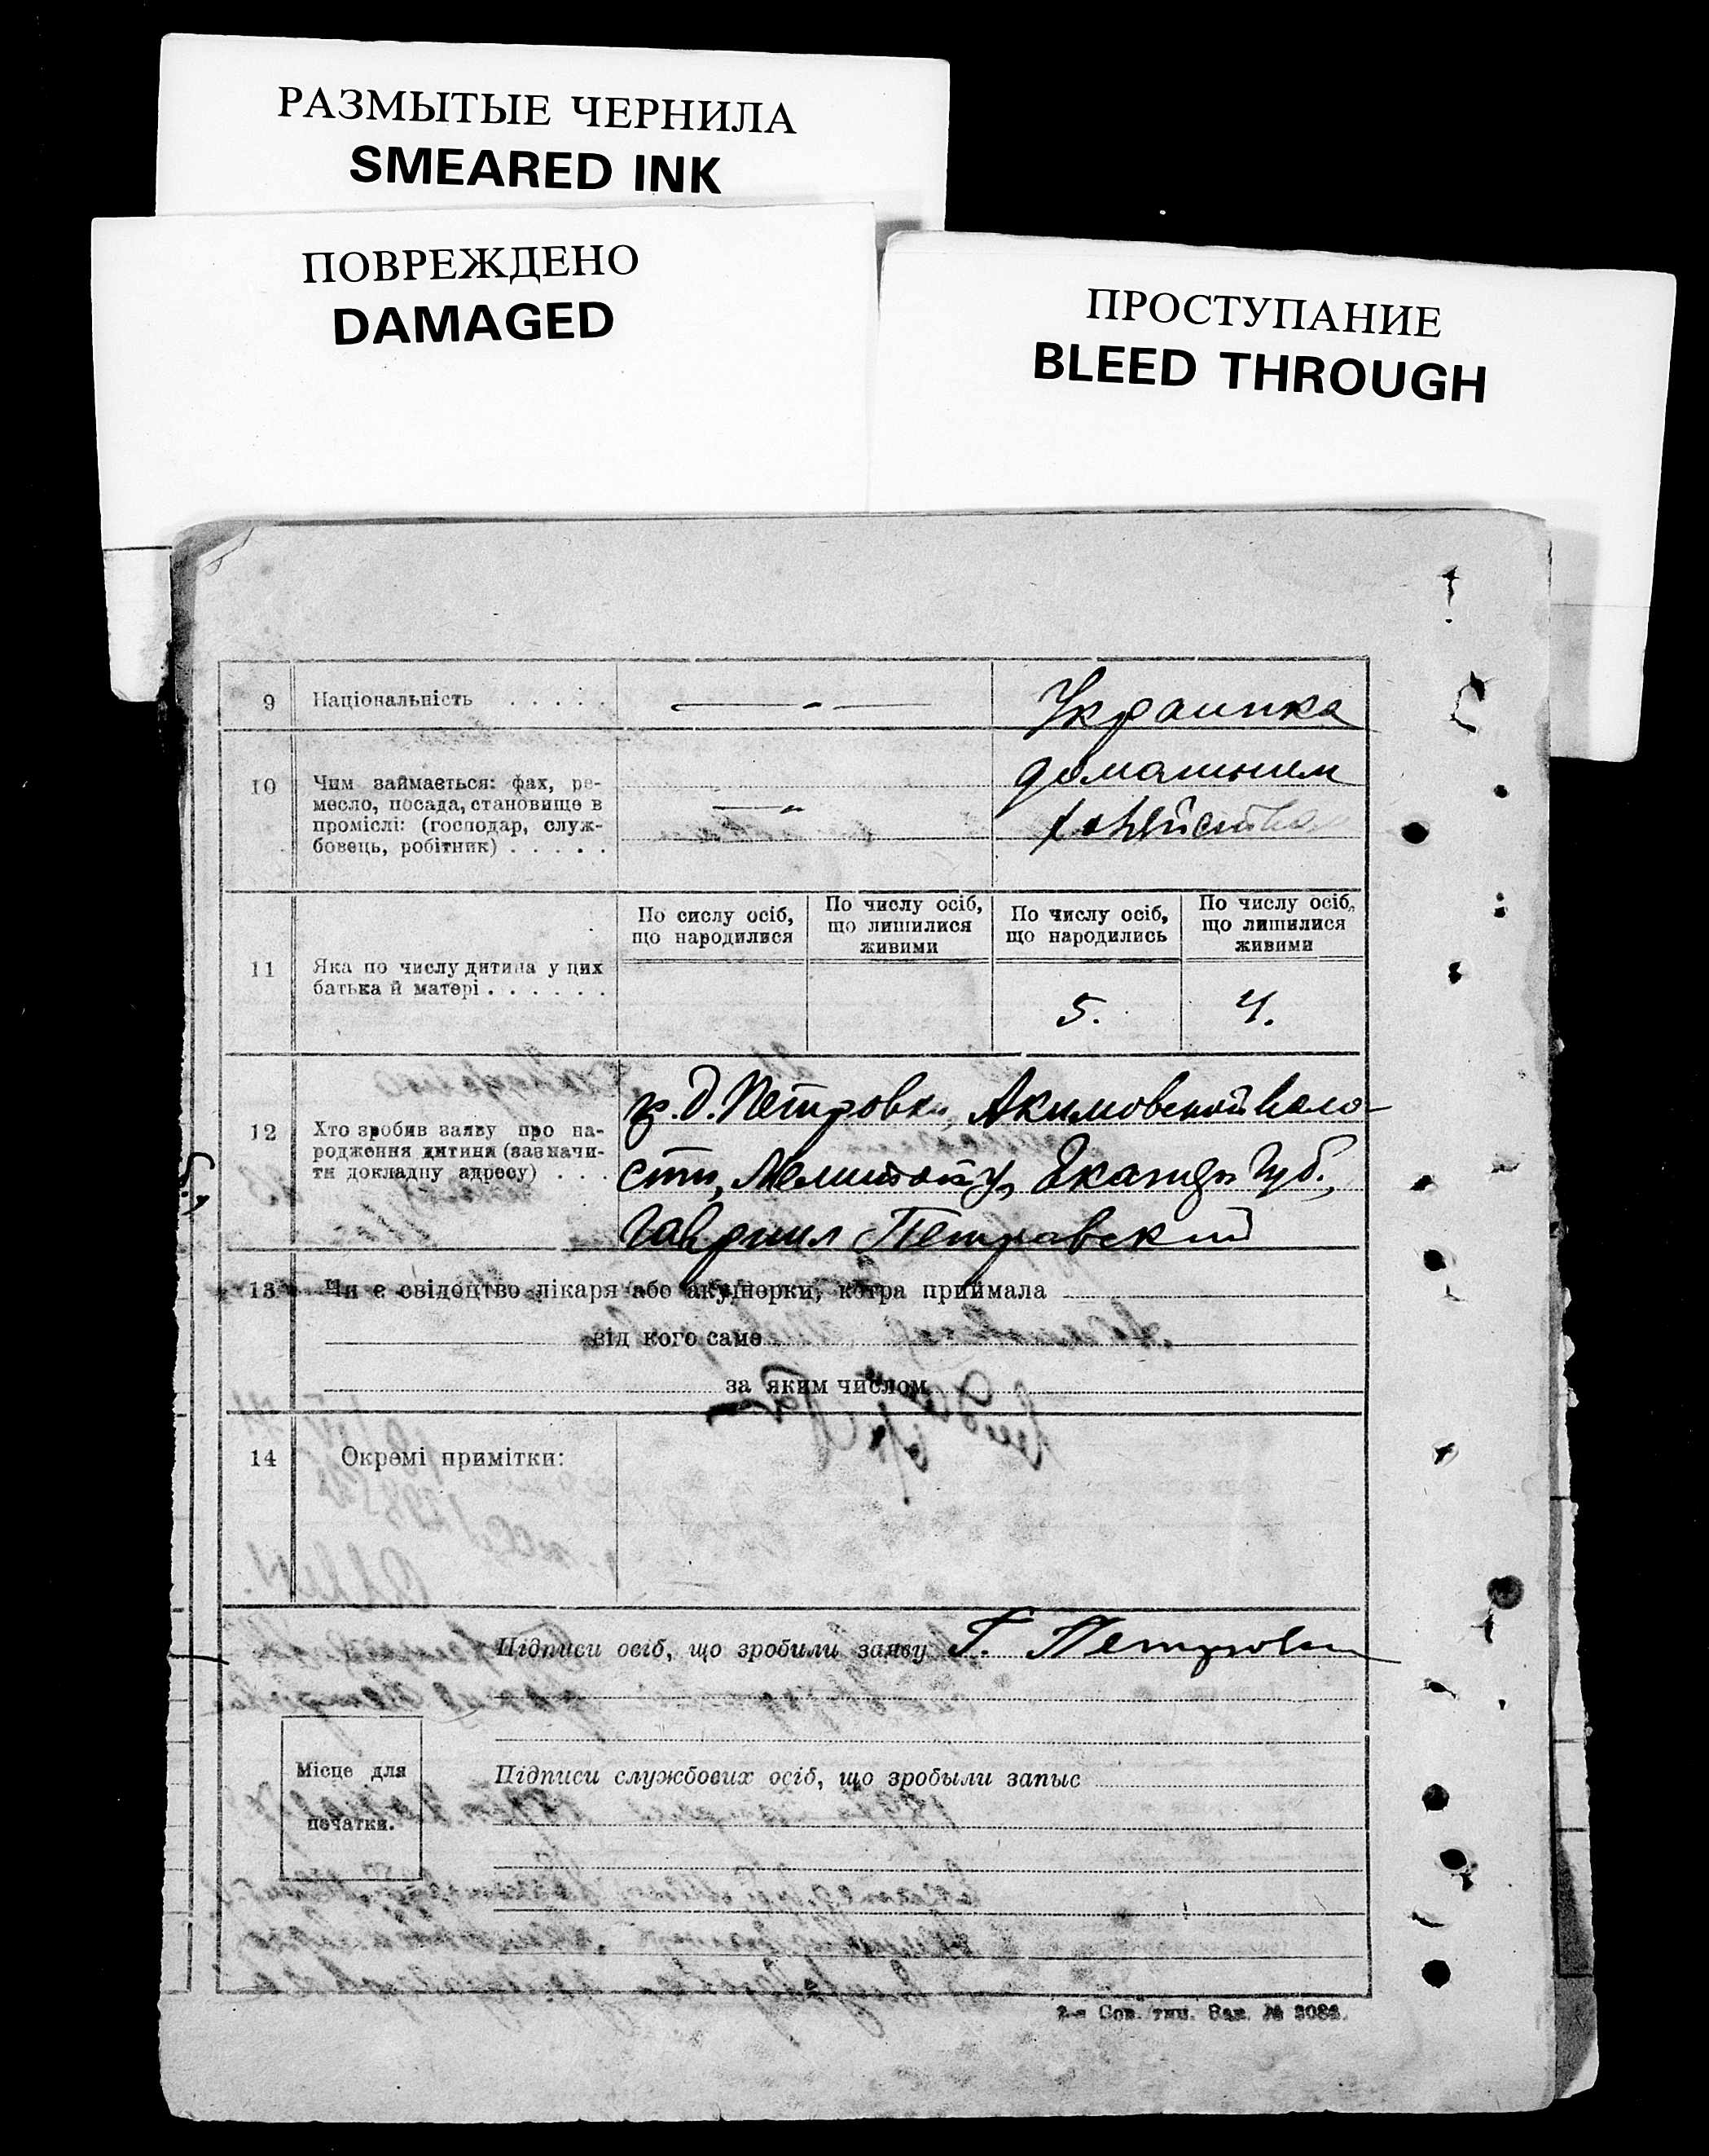 РАЗМЫТЫЕ ЧЕРНИЛА
SMEARED INK
ПОВРЕЖДЕНО
DAMAGED
ПРОСТУПАНИЕ
BLEED THROUGH
9 Національність . . . . . — „ — Украинка
10 Чим займається: фах, ре-
месло, посада, становище в
проміслі: (господар, служ-
бовець, робітник) . . . . .
— „
домашнем
хозяйстве
11 Яка по числу дитина у цих
батька й матері . . . . . .
По сислу осіб,
що народилися
По числу осіб,
що лишилися
живими
По числу осіб,
що народились
По числу осіб,
що лишилися
живими
5. 4.
12 Хто зробив заяву про на-
родження дитини (зазначи-
ти докладну адресу) . . .
гр. д. Петровки, Акимовской воло-
сти, Мелитоп. у, Екатер Губ.,
Гавриил Петровский
13 Чи є свідоцтво лікаря або акушерки, котра приймала
від кого саме
за яким числом
14 Окремі примітки:
Підписи осіб, що зробили заяву Г. Петровски
Місце для
печатки.
Підписи службових осіб, що зробыли запыс
2-я Сов. тип. Зак. № 3086.